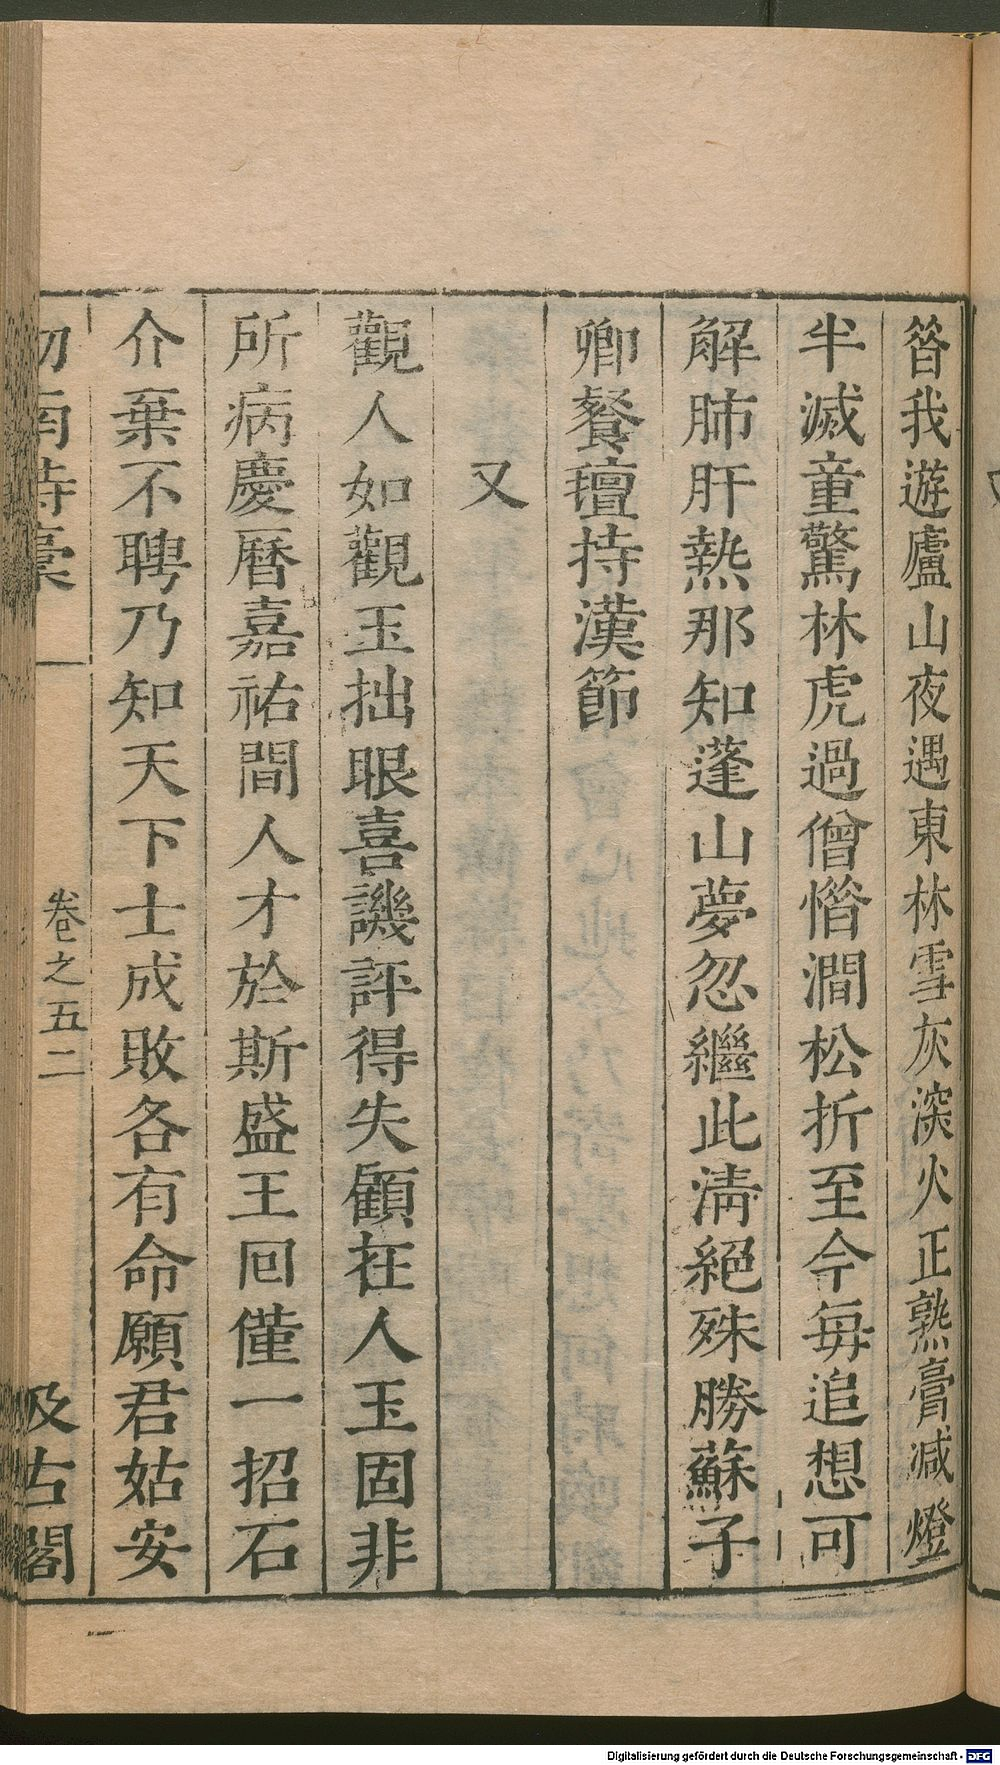 昝我遊廬山夜遇東林雪灰深火正熟膏減燈
半滅童驚林虎過僧惜澗松折至今每追想可
解肺肝熱那知蓬山夢忽繼此淸絕殊勝蘇子
卿餐氊持漢節
又
觀人如觀玉拙眼喜譏評得失顧在人玉固非
所病慶曆嘉祐間人才於斯盛王回僅一招石
介棄不聘乃知天下士成敗各有命願君姑安
劒南詩稾
卷之五
二
汲古閣
Digitalisierung gefördert durch die Deutsche Forschungsgemeinschaft - DFG